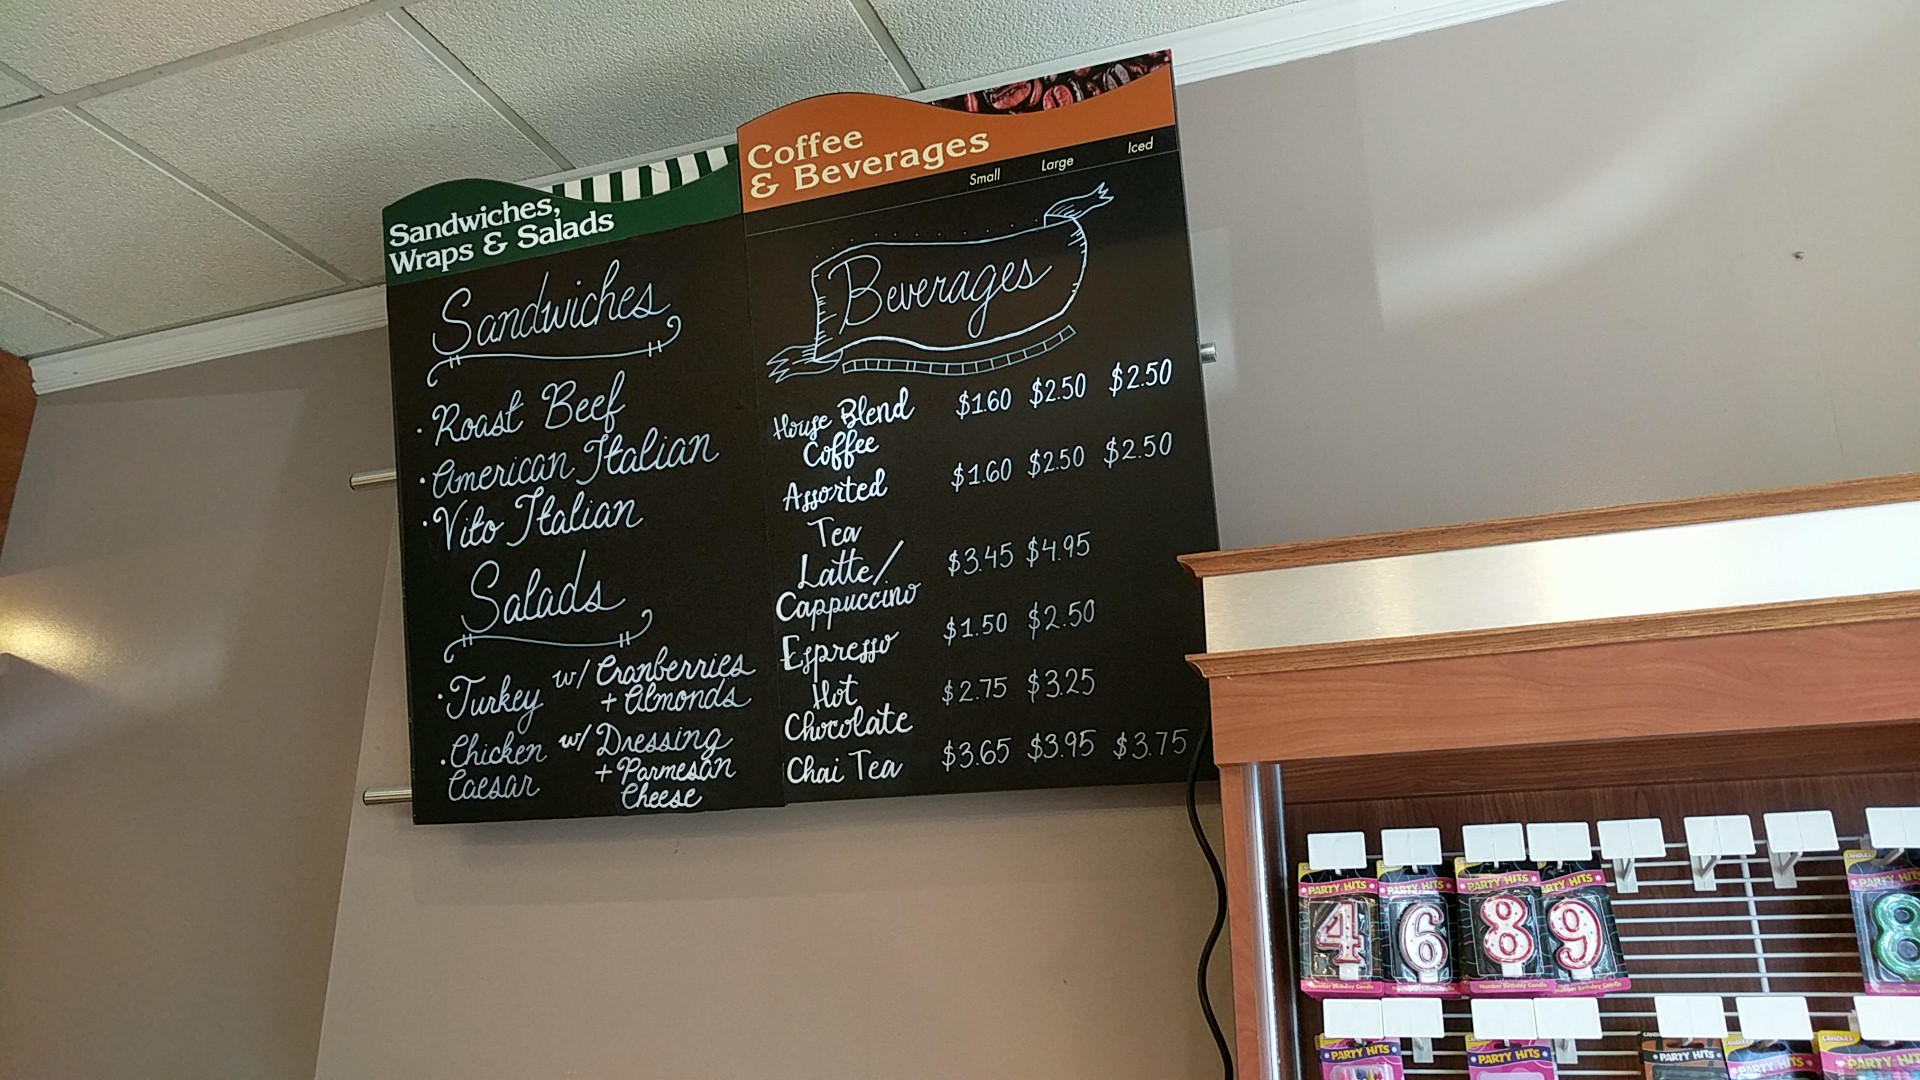 Sandwiches,
Wraps & Salads
Sandwiches
· Roast Beef
· American Italian
· Vito Italian
Salads
· Turkey w/ Cranberries
+ Almonds
· Chicken w/ Dressing
Caesar + Parmesan
Cheese
Coffee
& Beverages
Small Large Iced
Beverages
House Blend $1.60 $2.50 $2.50
Coffee
Assorted $1.60 $2.50 $2.50
Tea
Latte/ $3.45 $4.95
Cappuccino
Espresso $1.50 $2.50
Hot $2.75 $3.25
Chocolate
Chai Tea $3.65 $3.95 $3.75
PARTY HITS PARTY HITS PARTY HITS PARTY HITS PARTY HITS
4 6 8 9 8
Number Birthday Candle
PARTY HITS PARTY HITS PARTY HITS PARTY HITS PARTY HITS